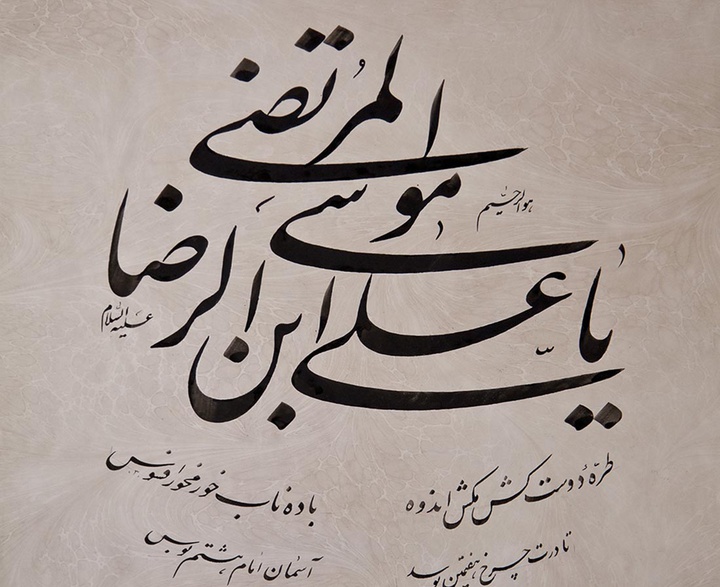 هوالرحیم
یا علی ابن موسی الرضا المرتضی
علیه السلام
طرّه دوست کش مکش اندوه
باده ناب خور مخور افسوس
تا درت چرخ هفتمین بوسد
آستان امام هشتم بوس